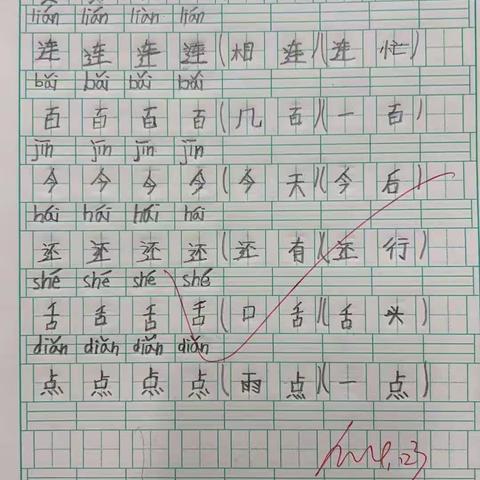 lián lián lián lián
连 连 连 连 (相 连)(连 忙)
bǎi bǎi bǎi bǎi
百 百 百 百 (几 百)(一 百)
jīn jīn jīn jīn
今 今 今 今 (今 天)(今 后)
hái hái hái hái
还 还 还 还 (还 有)(还 行)
shé shé shé shé
舌 舌 舌 舌 (口 舌)(舌 头)
diǎn diǎn diǎn diǎn
点 点 点 点 (雨 点)(一 点)